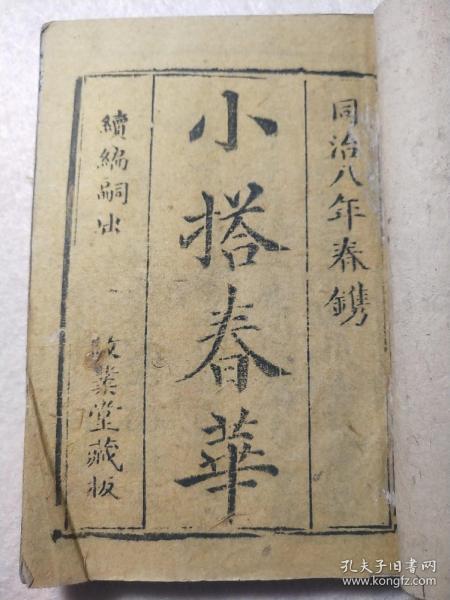 同治八年春鐫
小搭春華
續編嗣出
敬業堂藏板
孔夫子旧书网
www.kongfz.com